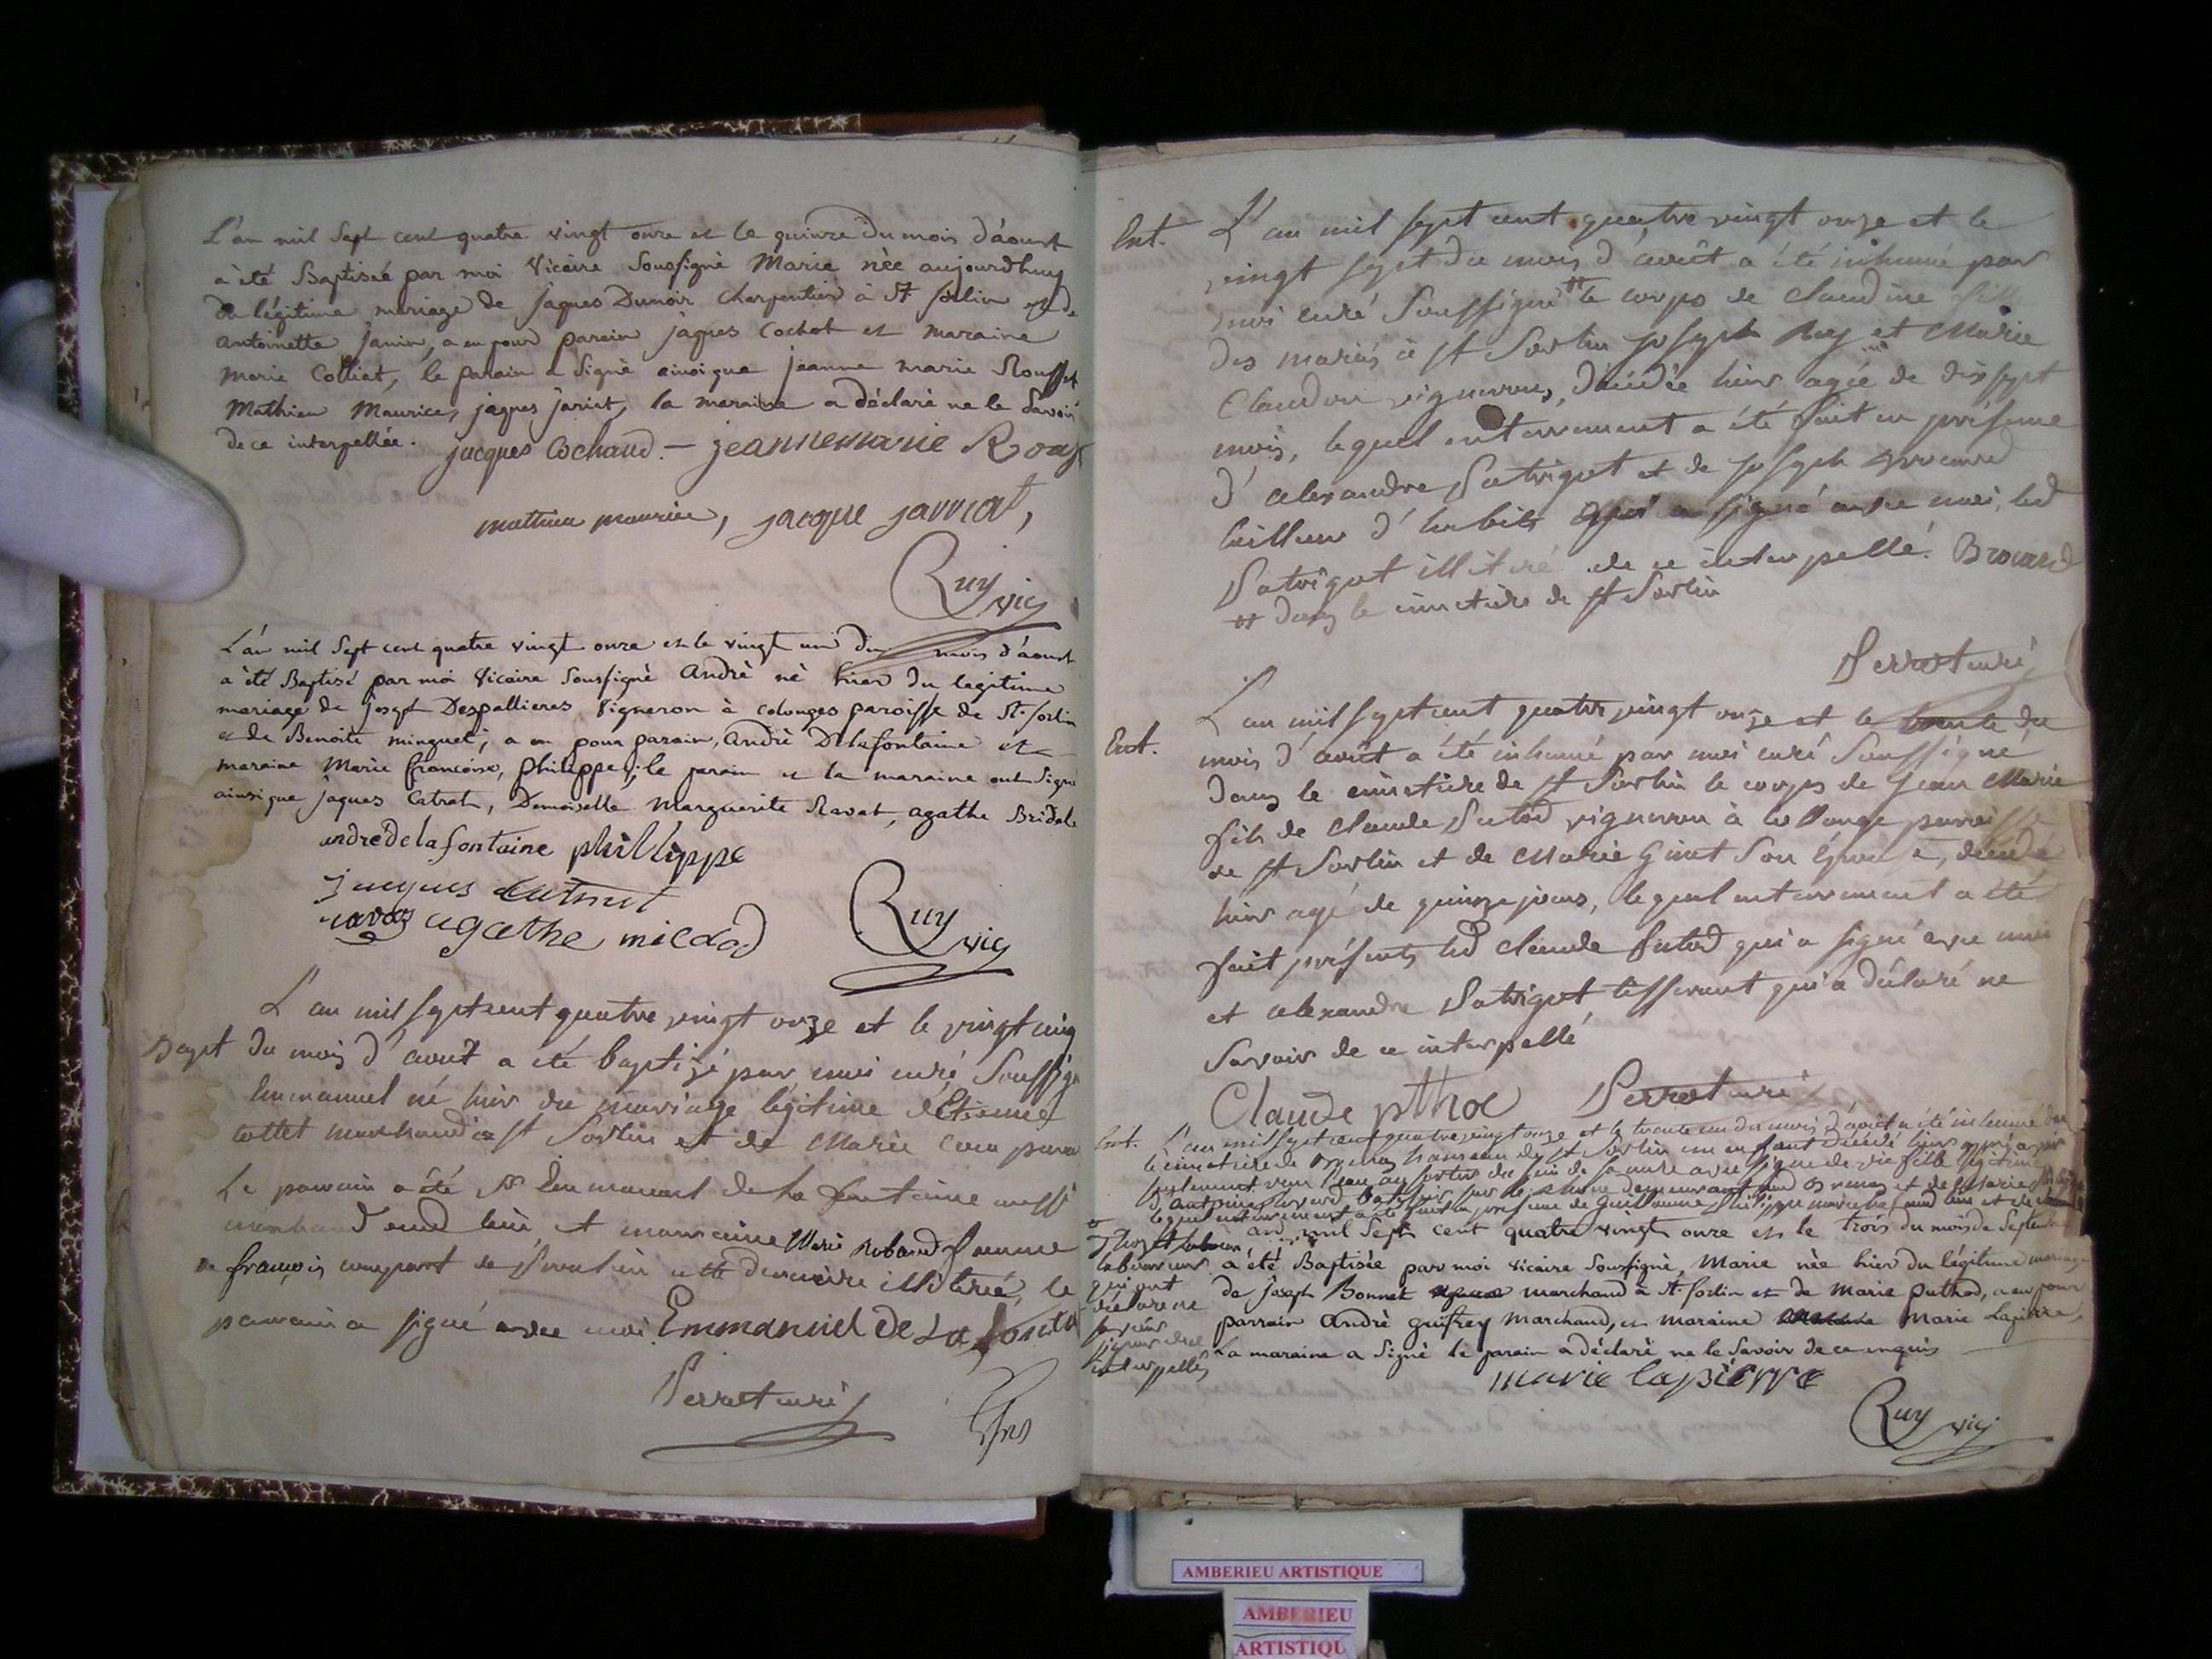 L'an mil Sept cent quatre vingt onze et le quinze du mois d'aoust
a été Baptisée par moi Vicaire Soussigné Marie née aujourdhuy
du légitime mariage de jaques Dunoir Charpentier à St Sorlin et de
antoinette janin, a eu pour parain jaques Cochot et maraine
marie Colliat, le parain a Signé ainsique jeanne marie Rousset
Mathieu Maurice, jaques jariat, la maraine a déclaré ne le Savoir
de ce interpellée. jacques Cochaud. – jeannemarie
mathieu maurice, jacque
Ruy vic
L'an mil Sept cent quatre vingt onze et le vingt un du mois d'aoust
a été Baptisé par moi Vicaire Soussigné André né hier du legitime
mariage de joseph Despallieres Vigneron à colonges paroisse de St. Sorlin
et de Benoite minguet, a eu pour parain, André Delafontaine et
maraine Marie francoise, philippe, le parain et la maraine ont Signé
ainsique jaques Catrat, Demoiselle Marguerite Ravat, agathe
andré de la fontaine philippe
jacques
agathe
Ruy vic
L'an mil sept cent quatre vingt onze et le vingt cinq
Bapt du mois d'aout a été baptizé par moi curé Soussigné
Emmanuel né hier du mariage légitime d'Etienne
cottet marchand à St Sorlin et de Marie
Le parrain a été Sr Emmanuel de La fontaine aussi
marchand et marraine Marie Robaud femme
de françois compart de cette derniere illitérée, le
parrain a signé avec moi. Emmanuel De La
Perret curé
Ent. L'an mil sept cent quatre vingt onze et le
vingt sept du mois d'août a été inhumé par
moi curé Soussigné le corps de Claudine
des mariés à St Sorlin joseph Ruy et Marie
Claudon vignerons, décédée hier agée de dix sept
mois, lequel enterrement a été fait en présence
d'alexandre Patrigot et de joseph
tailleur d'habits qui a signé avec moi, led
Patrigot illitéré de ce interpellé. Brouard
dans le cimetière de St Sorlin
Perret curé
L'an mil sept cent quatre vingt onze et le trente du
Ent. mois d'août a été inhumé par moi curé Soussigné
dans le cimetière de St Sorlin le corps de Jean Marie
fils de Claude Putod vigneron à Collonge paroisse
de St Sorlin et de Marie Ginet Son épouse, décédé
hier agé de quinze jours, lequel enterrement a été
fait présents led Claude Putod qui a signé avec moi
et alexandre Patrigot tisserant qui a déclaré ne
Savoir de ce interpellé
Claude pthod Perret curé
Ent. L'an mil sept cent quatre vingt onze et le trente un du mois d'août a été inhumé dans
le cimetière de hameau de St Sorlin un enfant décédé hier après avoir
seulement reçu l'eau au sortir du sein de sa mere avec signe de vie fille légitime
d'antoine
lequel enterrement a été fait en présence de Guillaume philippe
an mil Sept cent quatre vingt onze et le trois du mois de Septembre
laboureurs a été Baptisée par moi Vicaire Soussigné, Marie née hier du légitime mariage
qui ont de Joseph Bonnet marchand à St. Sorlin et de Marie Puthod, a eu pour
déclaré ne parrain André guifrey Marchand, et maraine Marie Lapierre,
savoir
signer de ce La maraine a Signé le parain a déclaré ne le Savoir de ce enquis
interpellés
marie lapierre
Ruy vic
AMBERIEU ARTISTIQUE
AMBERIEU
ARTISTIQU